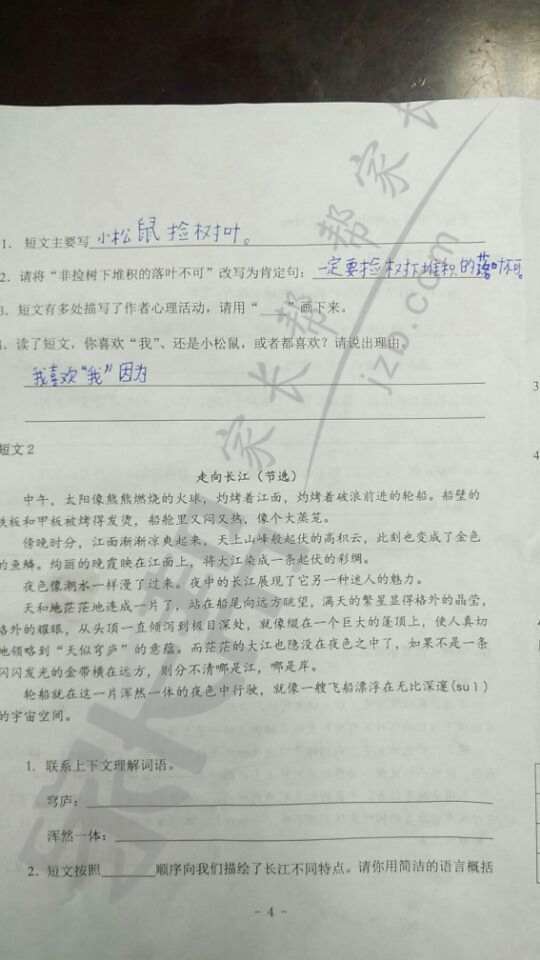 1. 短文主要写小松鼠捡树叶。
2. 请将“非捡树下堆积的落叶不可”改写为肯定句：一定要捡树打堆积的落叶不可。
3. 短文有多处描写了作者心理活动，请用“____”画下来。
4. 读了短文，你喜欢“我”、还是小松鼠，或者都喜欢？请说出理由。
我喜欢“我”因为
短文2
走向长江（节选）
中午，太阳像熊熊燃烧的火球，灼烤着江面，灼烤着破浪前进的轮船。船壁的
铁板和甲板被烤得发烫，船舱里又闷又热，像个大蒸笼。
傍晚时分，江面渐渐凉爽起来，天上山峰般起伏的高积云，此刻也变成了金色
的鱼鳞。绚丽的晚霞映在江面上，将大江染成一条起伏的彩绸。
夜色像潮水一样漫了过来。夜中的长江展现了它另一种迷人的魅力。
天和地茫茫地连成一片了，站在船尾向远方眺望，满天的繁星显得格外的晶莹，
格外的耀眼，从头顶一直倾泻到极目深处，就像缀在一个巨大的蓬顶上，使人真切
地领略到“天似穹庐”的意蕴。而茫茫的大江也隐没在夜色之中了，如果不是一条
闪闪发光的金带横在远方，则分不清哪是江，哪是岸。
轮船就在这一片浑然一体的夜色中行驶，就像一艘飞船漂浮在无比深邃(suì)
的宇宙空间。
1. 联系上下文理解词语。
穹庐：
浑然一体：
2. 短文按照______顺序向我们描绘了长江不同特点。请你用简洁的语言概括
- 4 -
3
4
家长帮家长帮
jzb.com